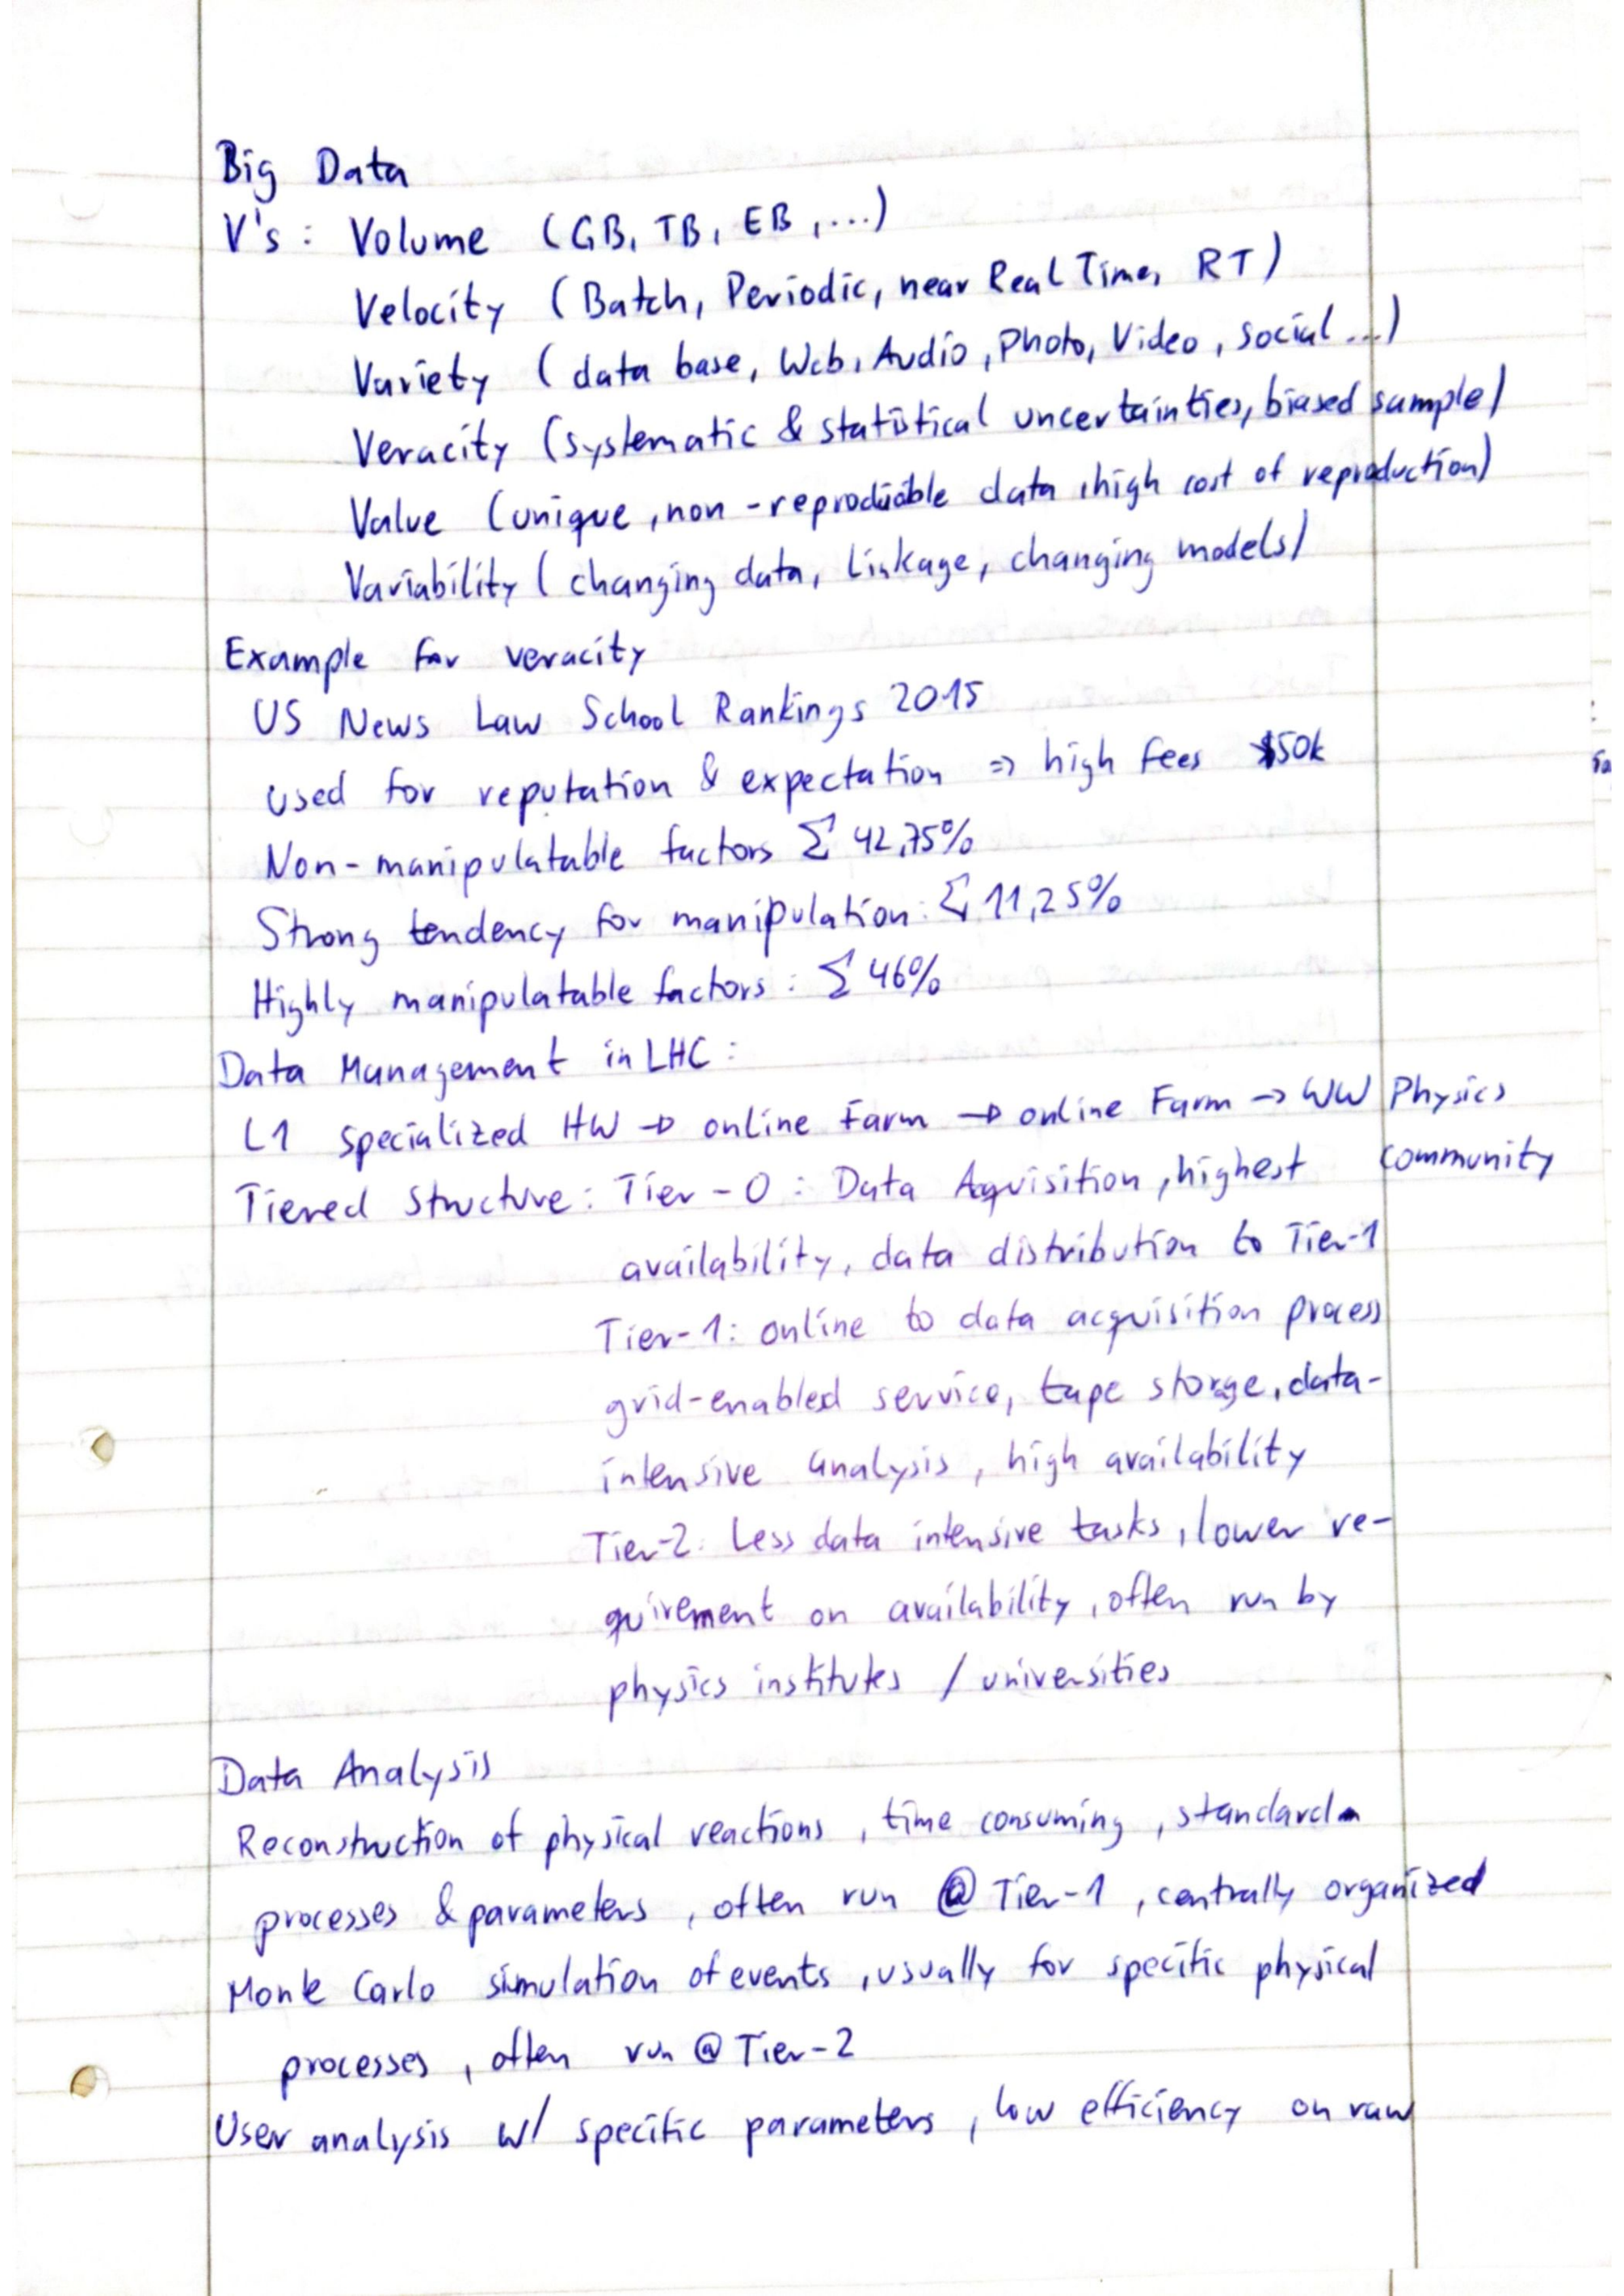 Big Data
V's : Volume (GB, TB, EB, ...)
Velocity (Batch, Periodic, near Real Time, RT)
Variety (data base, Web, Audio, Photo, Video, social ...)
Veracity (systematic & statistical uncertainties, biased sample)
Value (unique, non-reproducible data, high cost of reproduction)
Variability (changing data, linkage, changing models)
Example for veracity
US News Law School Rankings 2015
used for reputation & expectation => high fees $50k
Non-manipulatable factors Σ 42,75%
Strong tendency for manipulation: Σ 11,25%
Highly manipulatable factors: Σ 46%
Data Management in LHC:
L1 specialized HW → online Farm → online Farm → WW Physics
community
Tiered Structure: Tier-0: Data Aqvisition, highest
availability, data distribution to Tier-1
Tier-1: online to data acquisition process
grid-enabled service, tape storge, data-
intensive analysis, high availability
Tier-2: Less data intensive tasks, lower re-
quirement on availability, often run by
physics institutes / universities
Data Analysis
Reconstruction of physical reactions, time consuming, standard
processes & parameters, often run @ Tier-1, centrally organized
Monte Carlo simulation of events, usually for specific physical
processes, often run @ Tier-2
User analysis w/ specific parameters, low efficiency on raw